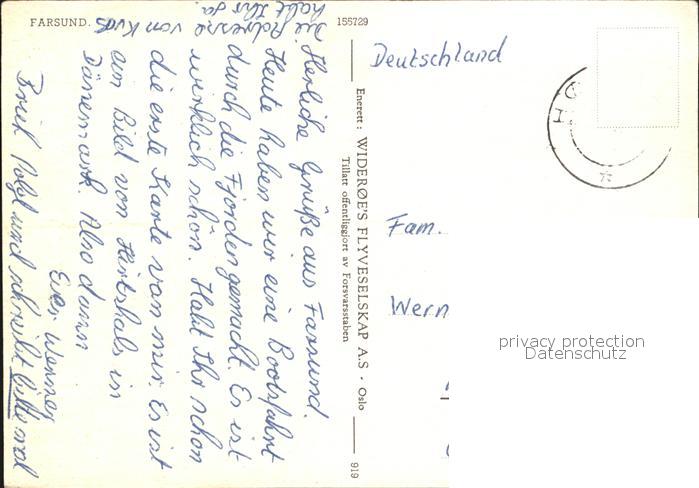 FARSUND.
156729
Deutschland
Fam.
Wern
Herliche Grüße aus Farsund.
Heute haben wir eine Bootsfahrt
durch die Fjorden gemacht. Es ist
wirklich schön. Habt Ihr schon
die erste Karte von mir. Es ist
ein Bild von Hirtshals in
Dänemark. Also dann
Euer Werner
Brief folgt und schreibt bitte mal
Die Adresse von
habt Ihr ja.
Enerett: WIDERØE'S FLYVESELSKAP A.S · Oslo
Tillatt offentliggjort av Forsvarsstaben
919
privacy protection
Datenschutz